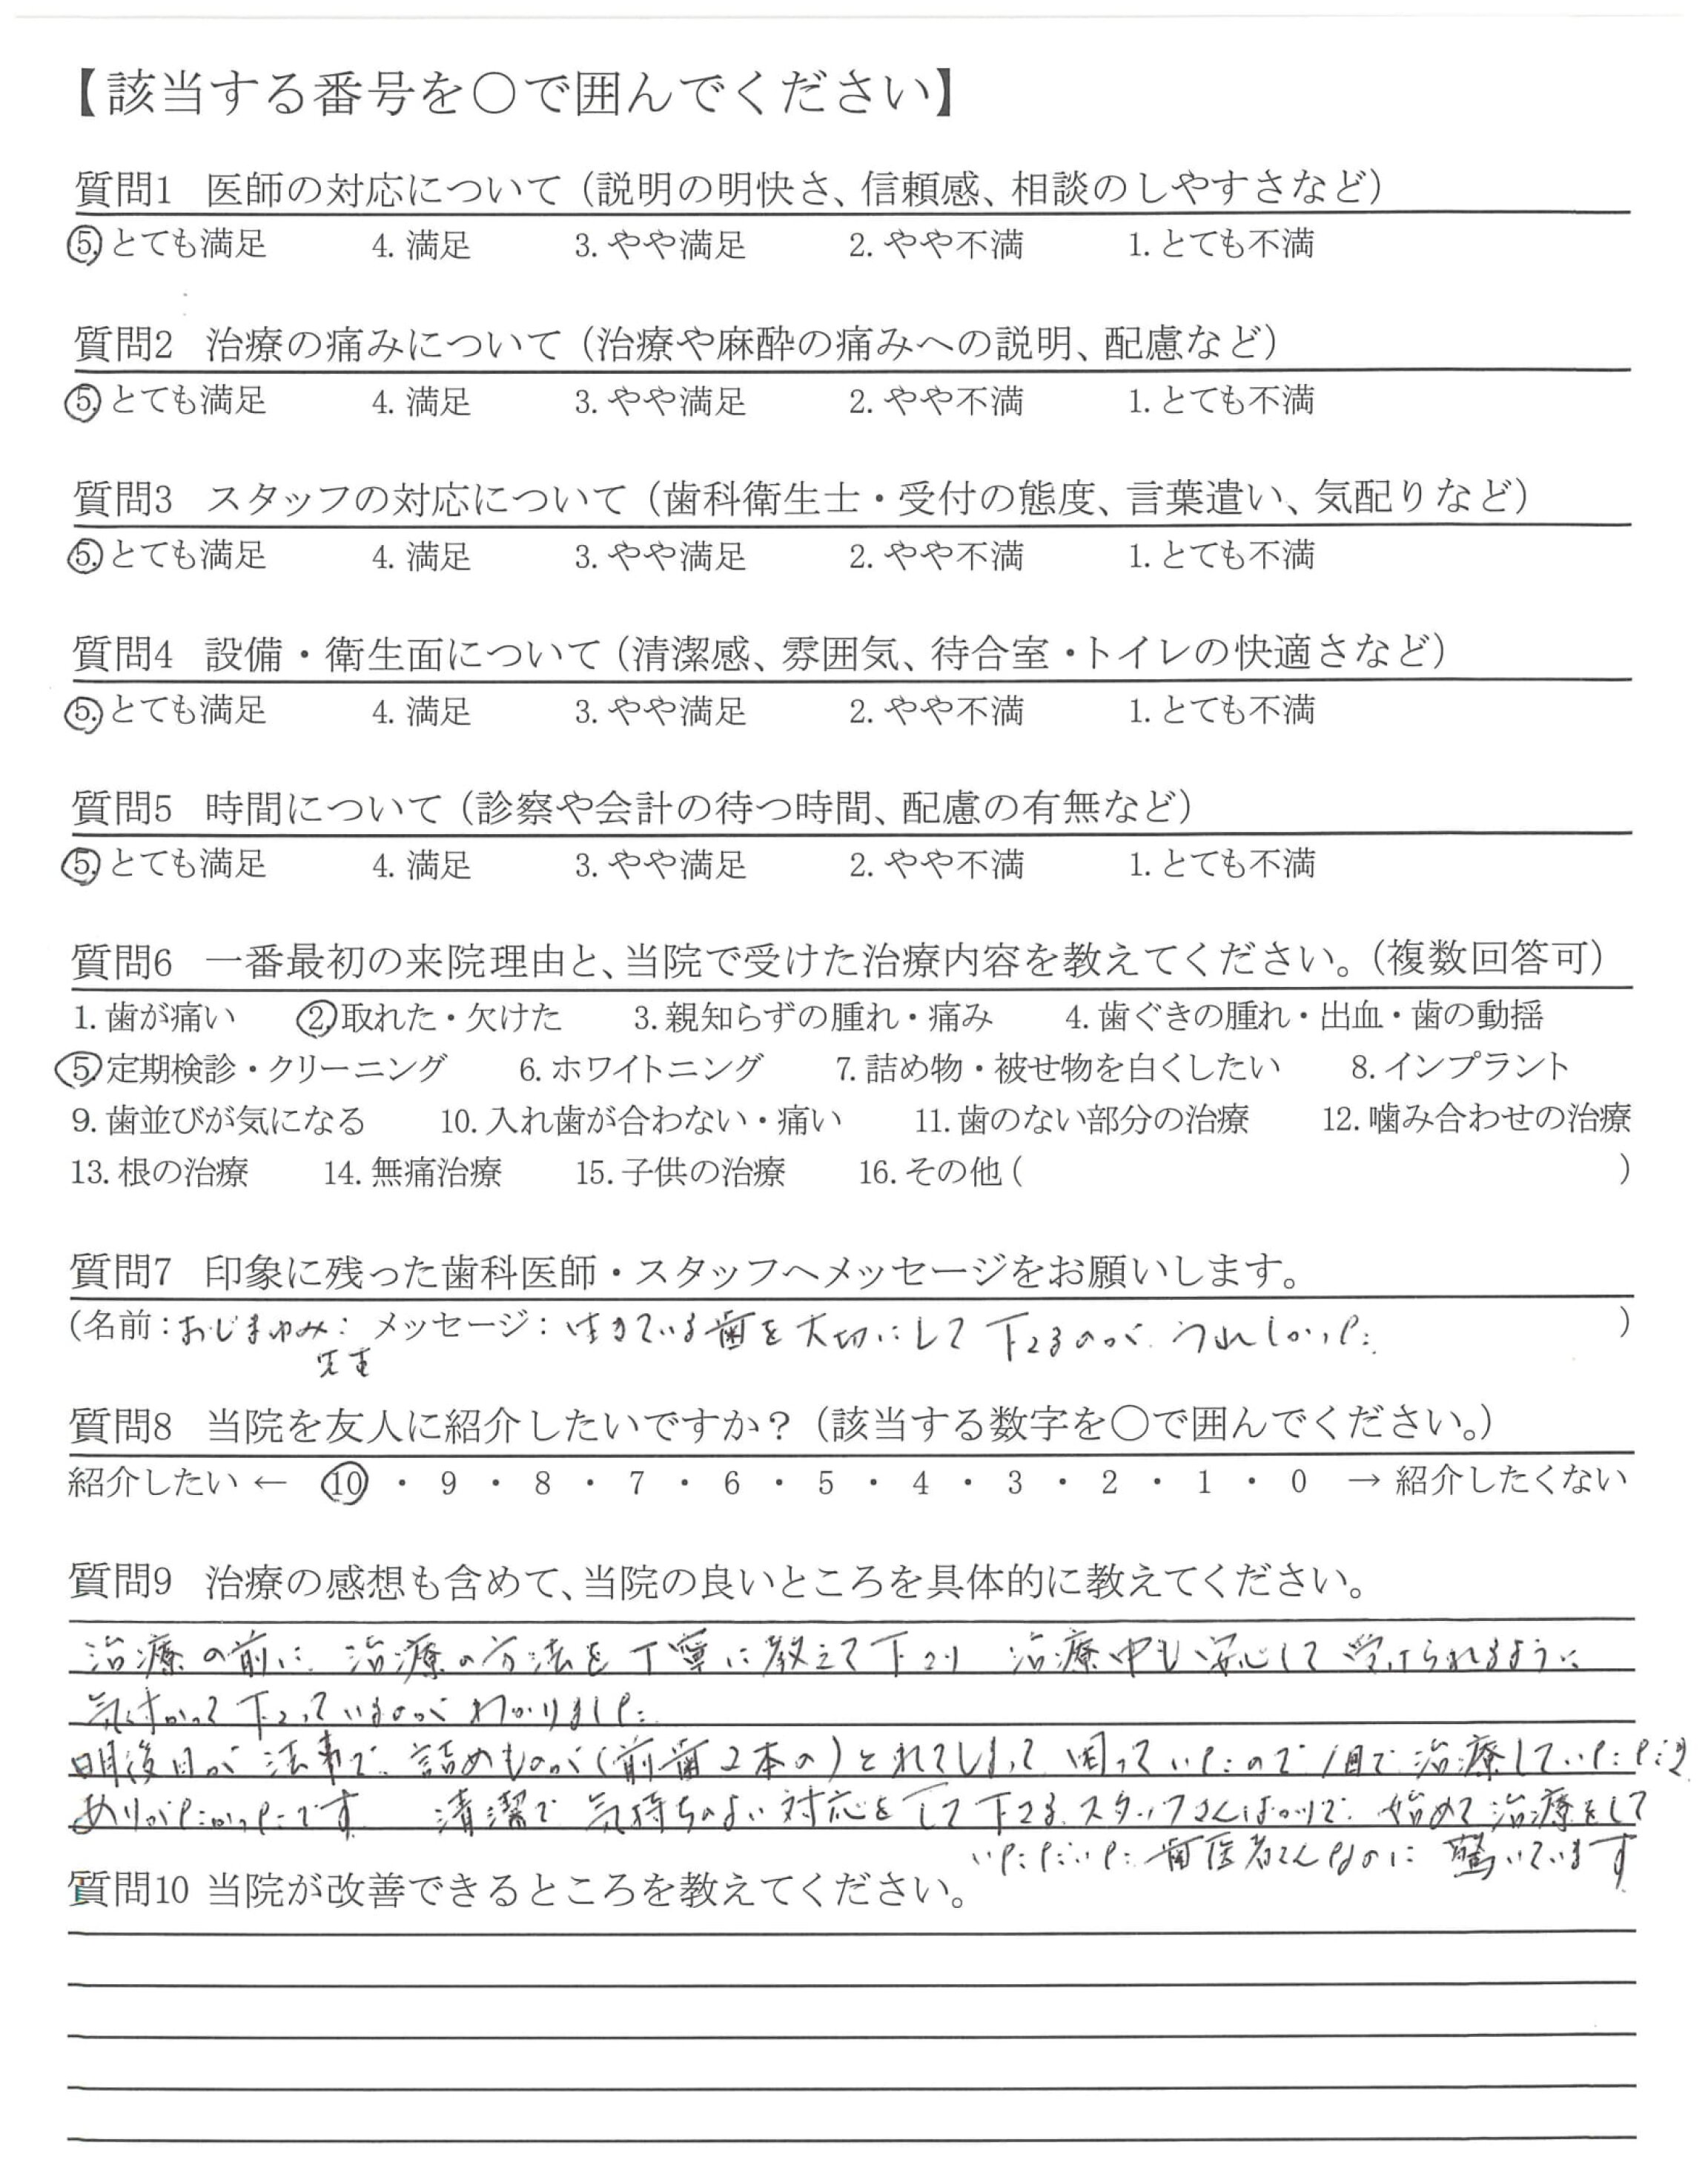 【該当する番号を〇で囲んでください】
質問1 医師の対応について（説明の明快さ、信頼感、相談のしやすさなど）
5. とても満足 4. 満足 3. やや満足 2. やや不満 1. とても不満
質問2 治療の痛みについて（治療や麻酔の痛みへの説明、配慮など）
5. とても満足 4. 満足 3. やや満足 2. やや不満 1. とても不満
質問3 スタッフの対応について（歯科衛生士・受付の態度、言葉遣い、気配りなど）
5. とても満足 4. 満足 3. やや満足 2. やや不満 1. とても不満
質問4 設備・衛生面について（清潔感、雰囲気、待合室・トイレの快適さなど）
5. とても満足 4. 満足 3. やや満足 2. やや不満 1. とても不満
質問5 時間について（診察や会計の待つ時間、配慮の有無など）
5. とても満足 4. 満足 3. やや満足 2. やや不満 1. とても不満
質問6 一番最初の来院理由と、当院で受けた治療内容を教えてください。（複数回答可）
1. 歯が痛い 2. 取れた・欠けた 3. 親知らずの腫れ・痛み 4. 歯ぐきの腫れ・出血・歯の動揺
5. 定期検診・クリーニング 6. ホワイトニング 7. 詰め物・被せ物を白くしたい 8. インプラント
9. 歯並びが気になる 10. 入れ歯が合わない・痛い 11. 歯のない部分の治療 12. 噛み合わせの治療
13. 根の治療 14. 無痛治療 15. 子供の治療 16. その他（ ）
質問7 印象に残った歯科医師・スタッフへメッセージをお願いします。
（名前：おじまゆみ メッセージ：生きている歯を大切にして下さるのが うれしかった ）
先生
質問8 当院を友人に紹介したいですか？（該当する数字を〇で囲んでください。）
紹介したい ← 10 ・ 9 ・ 8 ・ 7 ・ 6 ・ 5 ・ 4 ・ 3 ・ 2 ・ 1 ・ 0 → 紹介したくない
質問9 治療の感想も含めて、当院の良いところを具体的に教えてください。
治療の前に 治療の方法を丁寧に教えて下さり 治療中も安心して受けられるように
気づかって下さっているのがわかりました
明後日が法事で 詰めものが（前歯2本の）とれてしまって 困っていたので 1日で治療していただき
ありがたかったです 清潔で気持ちのよい対応をして下さるスタッフさんばかりで 始めて治療をして
いただいた歯医者さんなのに 驚いています
質問10 当院が改善できるところを教えてください。